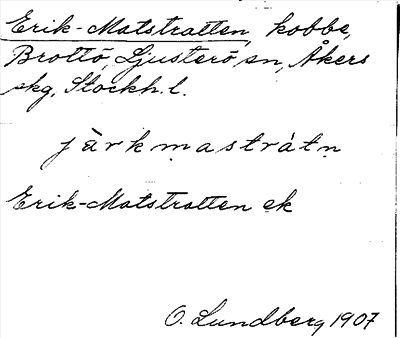 Erik-Matstratten, kobbe,
Brottö, Ljusterö sn, Åkers
skg, Stockh. l.
järkmastràtn
Erik-Matstratten ek
O. Lundberg 1907